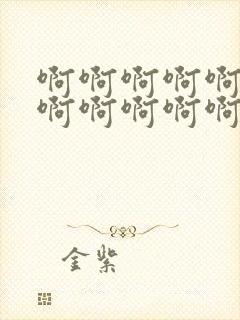 啊啊啊啊啊
啊啊啊啊啊
金紫